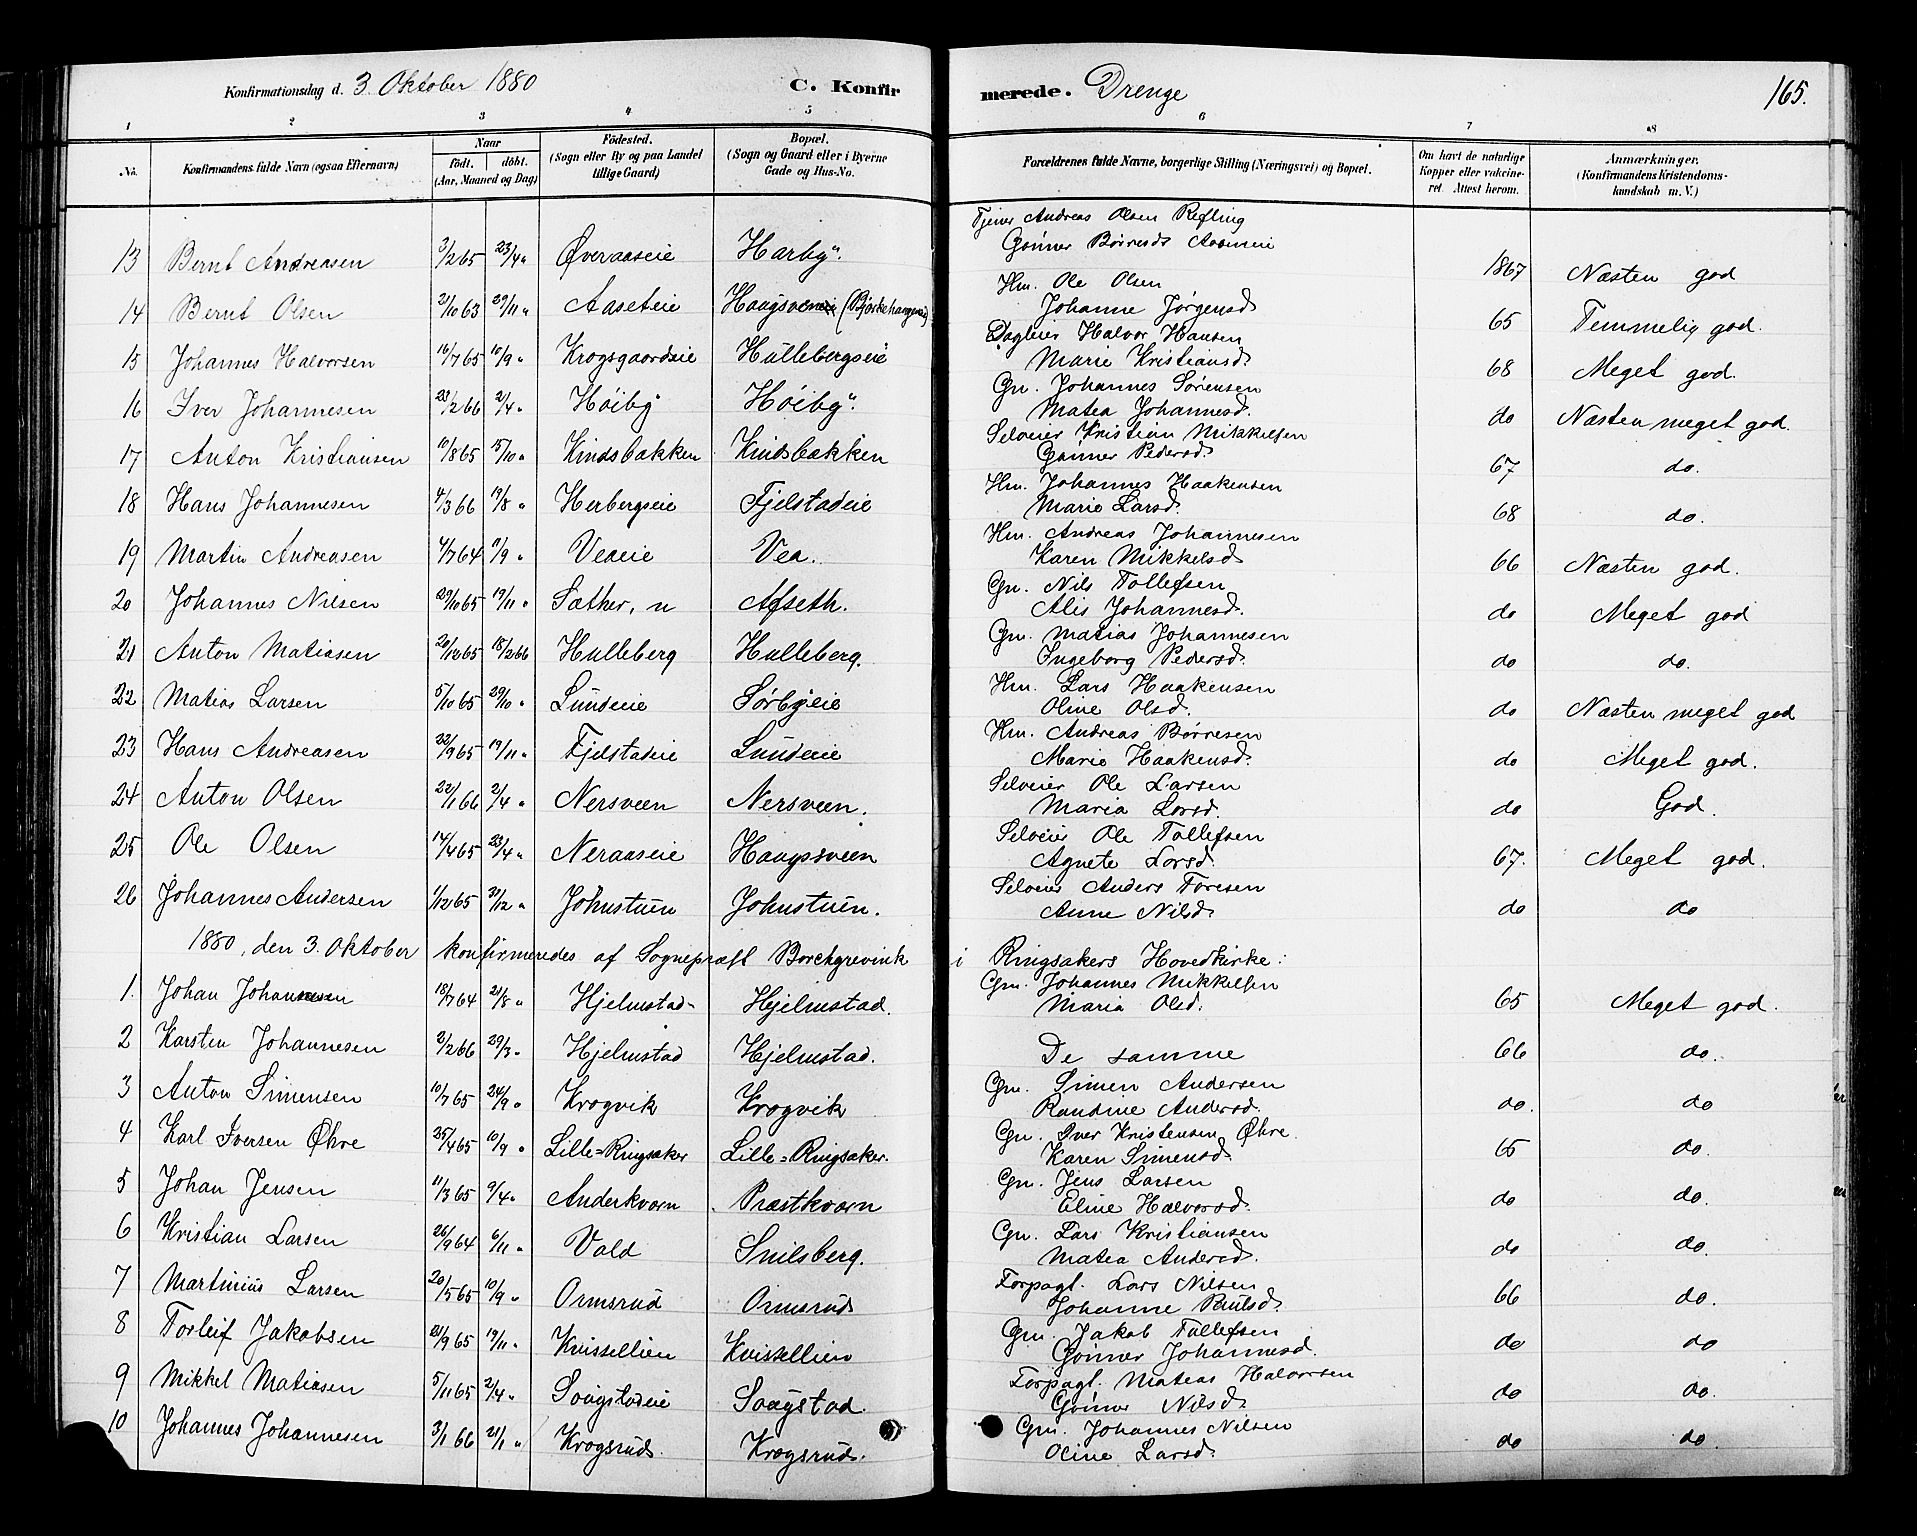 Konfirmationsdag d. 3. Oktober 1880 C. Konfir merede. Drenge 165.
1 2 3 4 5 6 7 8
No. Konfirmandens fulde Navn (ogsaa Efternavn) Naar født. døbt. (Aar, Maaned og Dag) Fødested. (Sogn eller By og paa Landet tillige Gaard) Bopæl. (Sogn og Gaard eller i Byerne Gade og Hus-No. Forældrenes fulde Navne, borgerlige Stilling (Næringsvei) og Bopæl. Om havt de naturlige Kopper eller vaccineret. Attest herom. Anmærkninger. (Konfirmandens Kristendomskundskab m. V.)
Tjener Andreas Olsen Refling
13 Bernt Andreasen 3/2 65 23/4 " Øveraaseie Harby. Gønner Børresd. 1867 Næsten god
Hm. Ole Olsen
14 Bernt Olsen 2/10 63 29/11 " Aaseteie Haugsveen (Bjørkehangen) Johanne Jørgensd. 65 Temmelig god.
Dagleier Halvor Hansen
15 Johannes Halvorsen 16/7 65 10/9 " Krogsgaardseie Hullebergseie Marie Kristiansd. 68 Meget god.
Gm. Johannes Sørensen
16 Iver Johannesen 23/2 66 2/4 " Høiby Høiby. Matea Johannesd. do Næsten meget god.
Selveier Kristian Mikkelsen
17 Anton Kristiansen 10/8 65 15/10 " Kindsbakken Kindsbakken Gønner Pedersd. 67 do.
Hm. Johannes Haakensen
18 Hans Johannesen 4/3 66 19/8 " Herbergseie Fjelstadeie Marie Larsd. 68 do.
Hm. Andreas Johannesen
19 Martin Andreasen 4/7 64 11/9 " Veaeie Vea. Karen Mikkelsd. 66 Næsten god.
Gm. Nils Tollefsen
20 Johannes Nilsen 29/10 65 19/11 " Sæther, n Afseth. Alis Johannesd. do Meget god
Gm. Matias Johannesen
21 Anton Matiasen 20/12 65 18/2 66 Hulleberg Hulleberg. Ingeborg Pedersd. do do.
Hm. Lars Haakensen
22 Matias Larsen 5/10 65 29/10 " Lundeie Sørbyeie Oline Olsd. do Næsten meget god
Hm. Andreas Børresen
23 Hans Andreasen 22/9 65 19/11 " Fjelstadeie Lundeie Marie Haakensd. do Meget god.
Selveier Ole Larsen
24 Anton Olsen 22/1 66 2/4 " Nersveen Nersveen. Maria Larsd. do God.
Selveier Ole Tollefsen
25 Ole Olsen 14/4 65 23/4 " Neraaseie Haugsveen Agnete Larsd. 67. Meget god.
Selveier Anders Toresen
26 Johannes Andersen 1/12 65 31/12 " Johnstuen Johnstuen. Anne Nilsd. do do
1880, den 3. Oktober konfirmeredes af Sogneprest Borchgrevink i Ringsakers Hovedkirke:
Gm. Johannes Mikkelsen
1. Johan Johannesen 18/7 64 21/8 " Hjelmstad Hjelmstad. Maria Olsd. 65 Meget god.
2 Karsten Johannesen 2/2 66 29/3 " Hjelmstad Hjelmstad. De samme 66 do.
Gm. Simen Andersen
3 Anton Simensen 10/7 65 24/9 " Krogvik Krogvik Randine Andersd. do. do
Gm. Iver Kristensen Øhre.
4 Karl Iversen Øhre 25/4 65 10/9 " Lille-Ringsaker Lille-Ringsaker. Karen Simensd. 65 do.
Gm. Jens Larsen
5 Johan Jensen 11/3 65 9/4 " Anderkvarn Præstkvarn Eline Halvorsd. do do.
Gm. Lars Kristiansen
6 Kristian Larsen 26/9 64 6/11 " Vald Smilsberg. Matea Andersd. do do.
Forpagt. Lars Nilsen
7 Martinius Larsen 20/5 65 10/9 " Ormsrud Ormsrud Johanne Paulsd. 66 do.
Gm. Jakob Tollefsen
8 Torleif Jakobsen 21/9 65 19/11 " Kvissellien Kvissellien Gønner Johannesd. do do
Forpagt. Matias Halvorsen
9 Mikkel Matiasen 5/11 65 2/4 " Saugstadeie Saugstad. Gønner Nilsd. do do.
Gm. Johannes Nilsen
10 Johannes Johannesen 3/1 66 21/1 " Krogsrud. Krogsrud. Oline Larsd. do do.